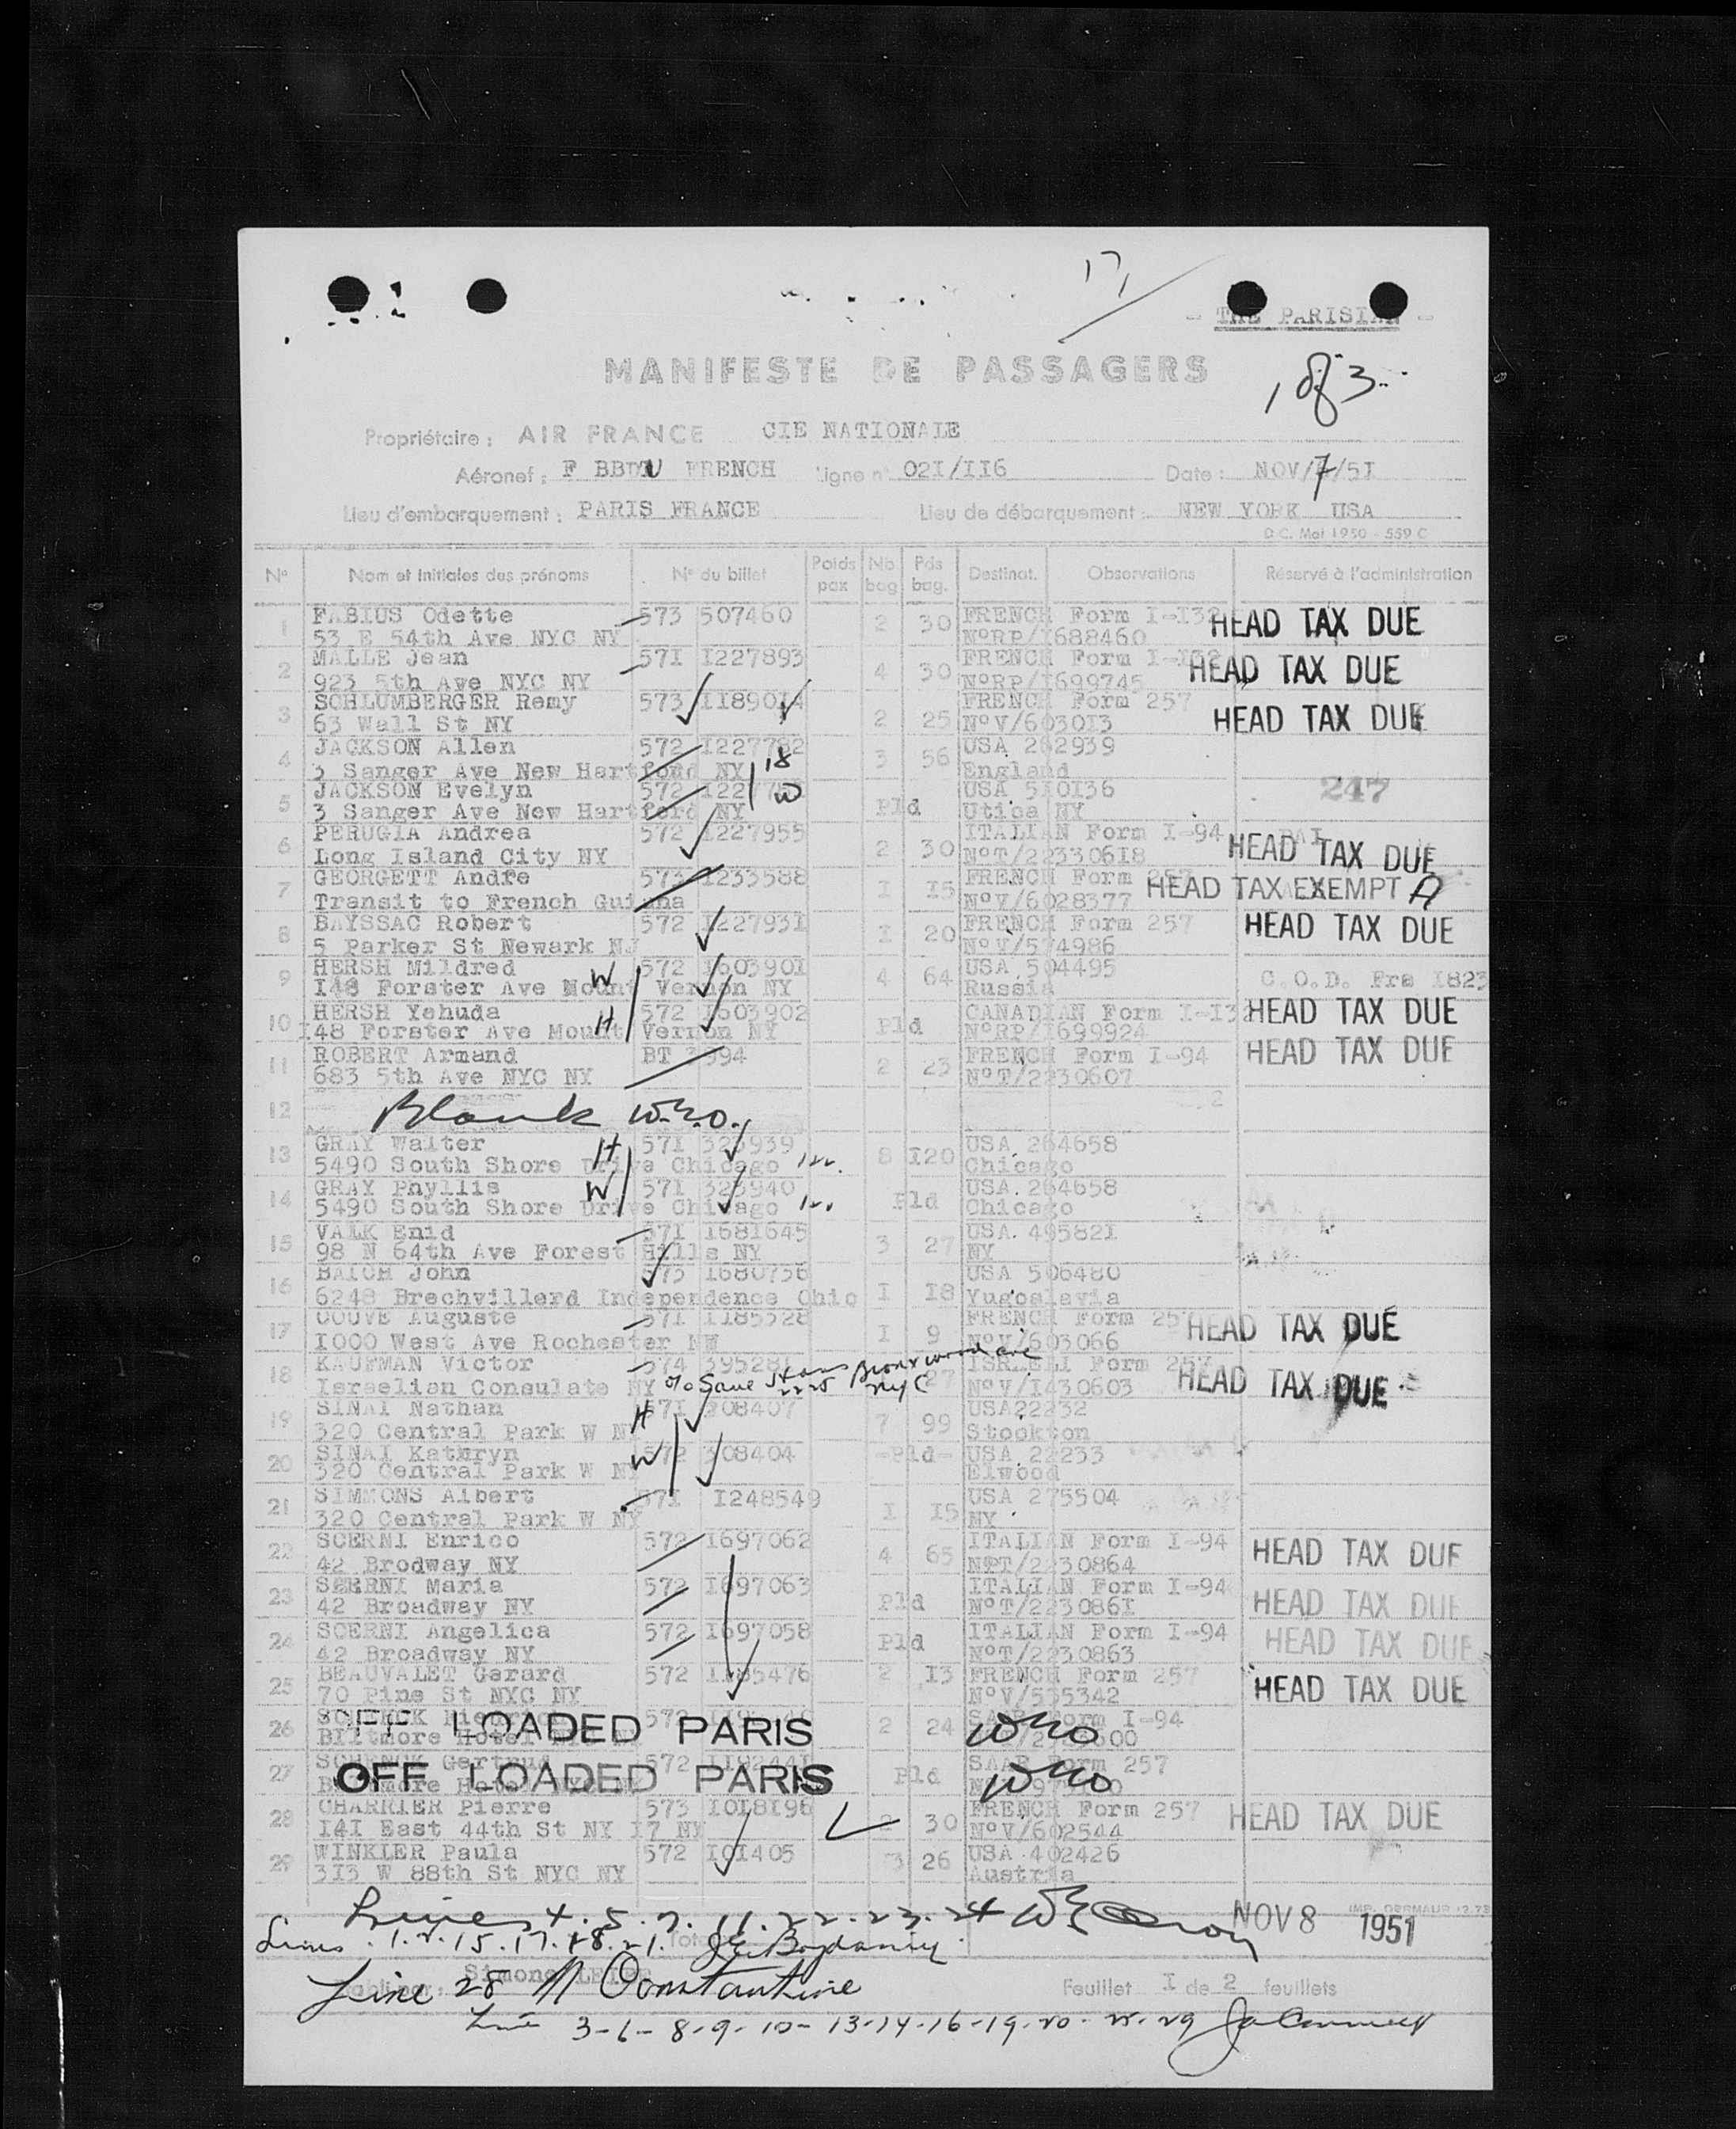 17,
- THE PARISIAN -
MANIFESTE DE PASSAGERS
1 of 3
Propriétaire : AIR FRANCE CIE NATIONALE
Aéronef : F BBDU FRENCH Ligne n° 02I/II6 Date : NOV/7/5I
Lieu d'embarquement : PARIS FRANCE Lieu de débarquement : NEW YORK USA
D.C. Mai 1950 - 559 C
N° Nom et Initiales des prénoms N° du billet Poids pax Nb bag Pds bag. Destinat. Observations Réservé à l'administration
1 FABIUS Odette 573 507460 2 30 FRENCH Form I-I32 HEAD TAX DUE
53 E 54th Ave NYC NY N°RP/I688460
2 MALLE Jean 57I I227893 4 30 FRENCH Form I-I32 HEAD TAX DUE
923 5th Ave NYC NY N°RP/I699745
3 SCHLUMBERGER Remy 573 II890I4 2 25 FRENCH Form 257 HEAD TAX DUE
63 Wall St NY N°V/603013
4 JACKSON Allen 572 I227782 3 56 USA 262939
3 Sanger Ave New Hartford NY England
5 JACKSON Evelyn 572 Pld USA 5I0I36 247
3 Sanger Ave New Hartford NY W Utica NY
6 PERUGIA Andrea 572 I227955 2 30 ITALIAN Form I-94 HEAD TAX DUE
Long Island City NY N°T/22330618
7 GEORGETT Andre 573 I233588 I I5 FRENCH Form 257 HEAD TAX EXEMPT A
Transit to French Guiana N°V/6028377
8 BAYSSAC Robert 572 I22793I I 20 FRENCH Form 257 HEAD TAX DUE
5 Parker St Newark NJ N°V/574986
9 HERSH Mildred W 572 I60390I 4 64 USA 504495 C.O.D. Frs I823
I48 Forster Ave Mount Vernon NY Russia
10 HERSH Yehuda H 572 I603902 Pld CANADIAN Form I-I32 HEAD TAX DUE
I48 Forster Ave Mount Vernon NY N°RP/I699924
11 ROBERT Armand BT 2 23 FRENCH Form I-94 HEAD TAX DUE
683 5th Ave NYC NY N°T/2230607
12 Blank
13 GRAY Walter H 57I 323939 8 I20 USA 264658
5490 South Shore Drive Chicago Chicago
14 GRAY Phyllis W 57I 323940 Pld USA. 264658
5490 South Shore Drive Chicago Chicago
15 VALK Enid 57I I68I645 3 27 USA. 49582I
98 N 64th Ave Forest Hills NY NY
16 BATCH John 573 I680756 I I8 USA 506480
6248 Brechvillerd Independence Ohio Yugoslavia
17 COUVE Auguste 57I II85528 I 9 FRENCH Form 257 HEAD TAX DUE
I000 West Ave Rochester N°V/603066
18 KAUFMAN Victor 574 27 ISRAELI Form 257 HEAD TAX DUE
Israelian Consulate NY Bronxwood ave NYC N°V/I430603
19 SINAI Nathan H 57I 308407 7 99 USA22232
320 Central Park W NY Stockton
20 SINAI Kathryn W 572 308404 -Pld- USA 22233
320 Central Park W NY Elwood
21 SIMMONS Albert 57I I248549 I I5 USA 275504
320 Central Park W NY NY
22 SCERNI Enrico 572 I697062 4 65 ITALIAN Form I-94 HEAD TAX DUE
42 Brodway NY N°T/2230864
23 SCERNI Maria 572 I697063 Pld ITALIAN Form I-94 HEAD TAX DUE
42 Broadway NY N°T/223086I
24 SCERNI Angelica 572 I697058 Pld ITALIAN Form I-94 HEAD TAX DUE
42 Broadway NY N°T/2230863
25 BEAUVALET Gerard 572 II85476 2 I3 FRENCH Form 257 HEAD TAX DUE
70 Pine St NYC NY N°V/535342
26 OFF LOADED PARIS 572 2 24 Form I-94
Biltmore Hotel
27 OFF LOADED PARIS 572 Pld SAAR Form 257
28 CHARRIER Pierre 573 I0I8I96 2 30 FRENCH Form 257 HEAD TAX DUE
I4I East 44th St NY I7 NY N°V/602544
29 WINKLER Paula 572 I0I405 3 26 USA 402426
3I3 W 88th St NYC NY Austria
Lines 4. 5. 7. 11. 22. 23. 24 NOV 8 1951
Lines. 1. 2. 15. 17. 18. 21.
Simone
Line 28 N Constantine Feuillet I de 2 feuillets
Line 3-6-8-9-10-13-14-16-19-20-25-29